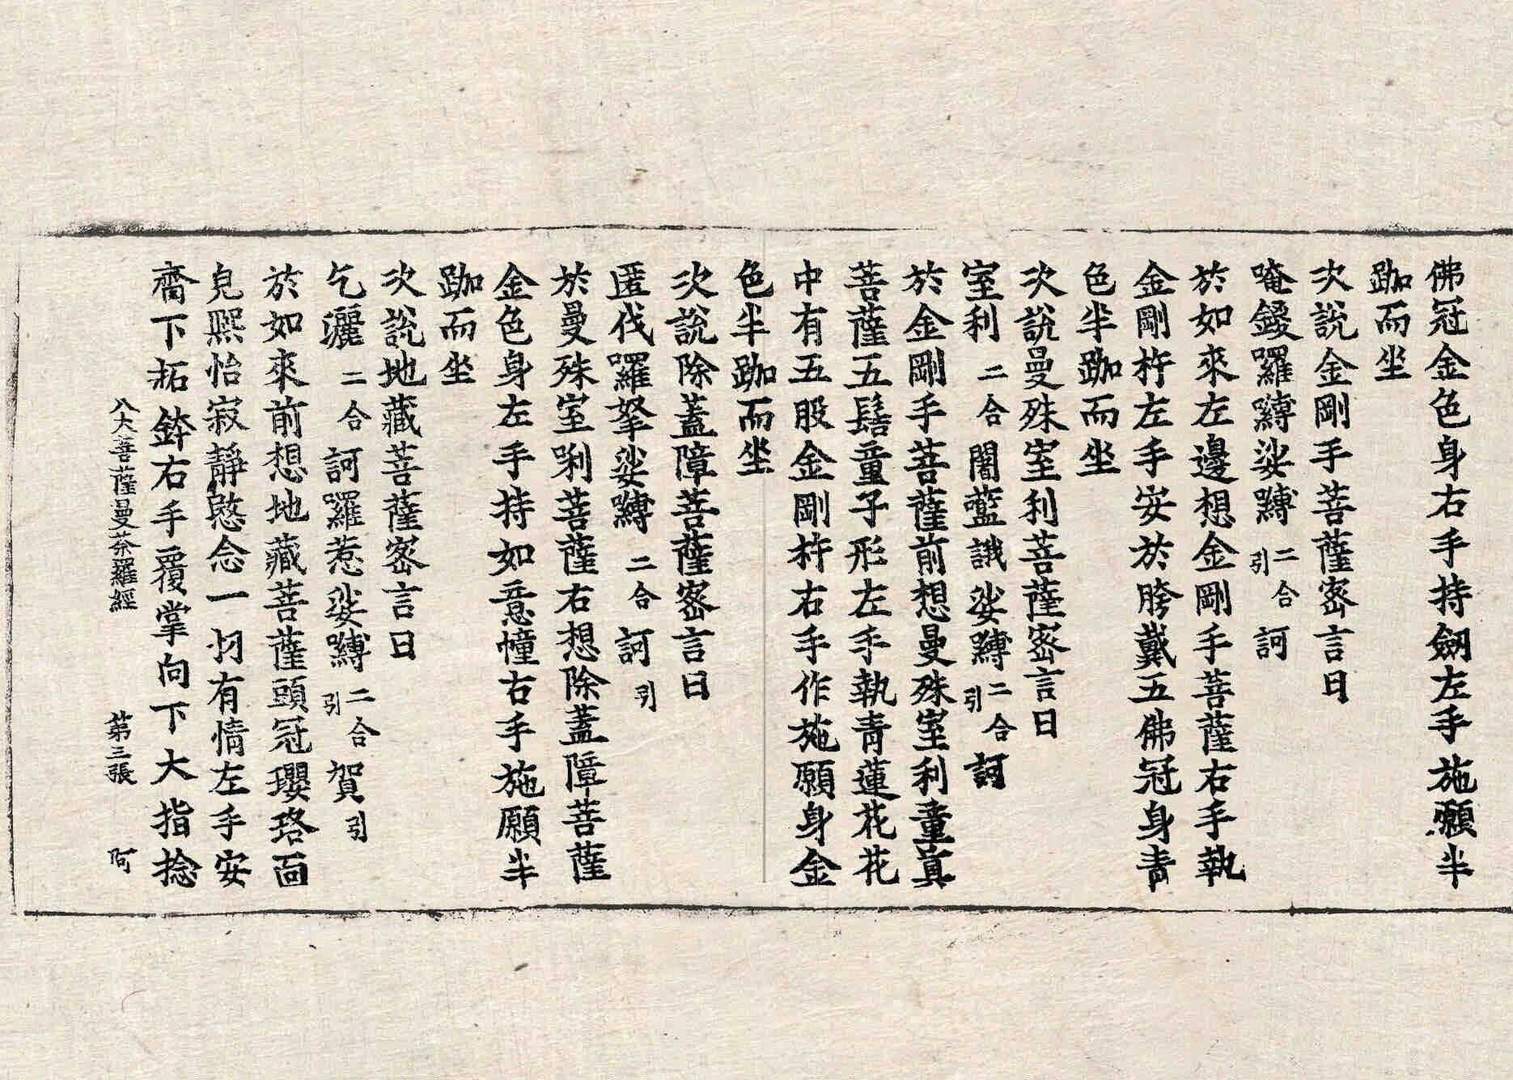 佛冠金色身右手持劒左手施願半
跏而坐
次說金剛手菩薩密言曰
唵鑁囉縛娑縛二合引訶
於如來左邊想金剛手菩薩右手執
金剛杵左手安於胯戴五佛冠身青
色半跏而坐
次說曼殊室利菩薩密言曰
室利二合闇藍誐娑縛二合引訶
於金剛手菩薩前想曼殊室利童真
菩薩五髻童子形左手執青蓮花花
中有五股金剛杵右手作施願身金
色半跏而坐
次說除蓋障菩薩密言曰
匿伐羅拏娑縛二合訶引
於曼殊室唎菩薩右想除蓋障菩薩
金色身左手持如意幢右手施願半
跏而坐
次說地藏菩薩密言曰
乞灑二合訶羅惹娑縛二合引賀引
於如來前想地藏菩薩頭冠瓔珞面
皃熈怡寂靜愍念一切有情左手安
齎下拓鉢右手覆掌向下大指捻
八大菩薩曼荼羅經 第三張 阿